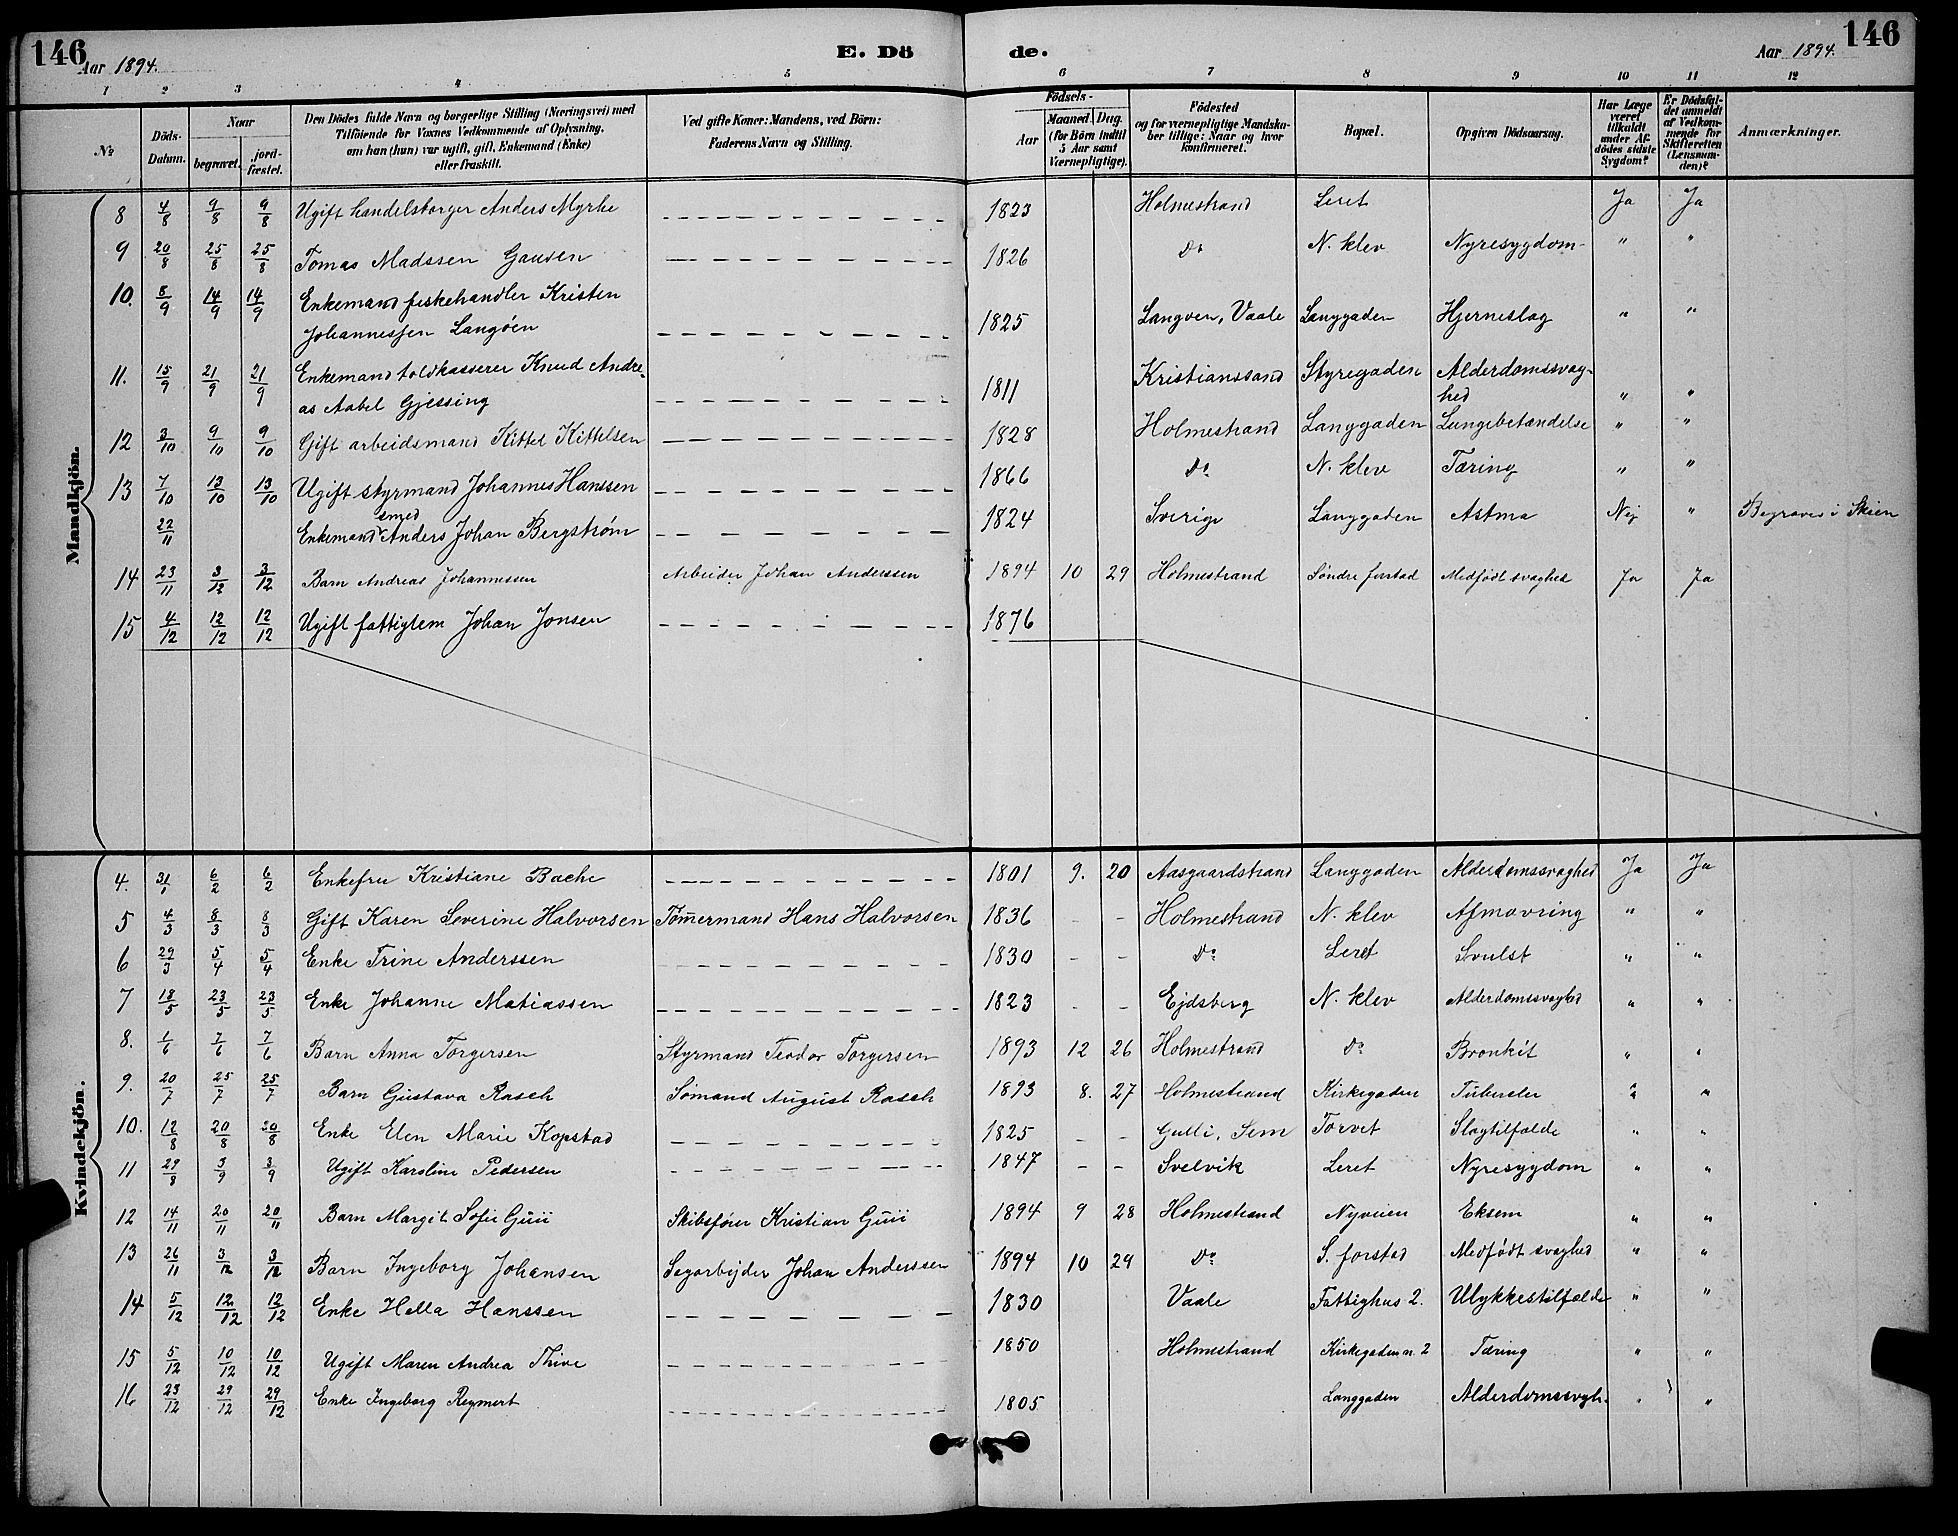 146 Aar 1894. E. Dö de. Aar 1894. 146
1 2 3 4 5 6 7 8 9 10 11 12
No Döds-Datum. Naar begravet. jord-fæstet. Den Dödes fulde Navn og borgerlige Stilling (Næringsvei) med Tilföiende for Voxnes Vedkommende af Oplysning, om han (hun) var ugift, gift, Enkemand (Enke) eller fraskilt. Ved gifte Koner: Mandens, ved Börn: Faderens Navn og Stilling. Födsels- Aar Maaned Dag. (for Börn indtil 5 Aar samt Værnepligtige). Födested og for værnepligtige Mandska-ber tillige: Naar og hvor konfirmeret. Bopæl. Opgiven Dödsaarsag. Har Læge været tilkaldt under Af-dödes sidste Sygdom? Er Dödsfal-det anmeldt af Vedkom-mende for Skifteretten (Lensman-den)? Anmærkninger.
Mandkjön.
8 4/8 9/8 9/8 Ugift handelsborger Anders Myrhe 1823 Holmestrand Leret Ja Ja
9 20/8 25/8 25/8 Tomas Madssen Gausen 1826 Do N. klev Nyresygdom- " "
10. 8/9 14/9 14/9 Enkemand fiskehandler Kristen
Johannessen Langöen 1825 Langöen, Vaale Langgaden Hjerneslag " "
11. 15/9 21/9 21/9 Enkemand toldkasserer Knud Andre-
as Aabel Gjessing 1811 Kristianssand Styregaden Alderdomssvag-
hed " "
12 3/10 9/10 9/10 Gift arbeidsmand Kittel Kittelsen 1828 Holmestrand Langgaden Lungebetændelse " "
13 7/10 13/10 13/10 Ugift styrmand Johannes Hanssen 1866 Do N. klev Tæring " "
smed
22/11 Enkemand Anders Johan Bergstrøm 1824 Sverige Langgaden Astma Nej " Begraves i Skien
14 23/11 3/12 3/12 Barn Andreas Johannessen Arbeider Johan Anderssen 1894 10 29 Holmestrand Søndre forstad Medfødt svaghed Ja Ja
15 4/12 12/12 12/12 Ugift fattiglem Johan Jonsen 1876
Kvindekjön.
4. 31/1 6/2 6/2 Enkefru Kristiane Bache 1801 9. 20 Aasgaardstrand Langgaden Alderdomssvaghed Ja Ja
5 4/3 8/3 8/3 Gift Karen Severine Halvorsen Tømmermand Hans Halvorsen 1836 - - Holmestrand N. klev Afmavring " "
6 29/3 5/4 5/4 Enke Trine Anderssen 1830 - - Do Leret Svulst " "
7 18/5 23/5 23/5 Enke Johanne Matiassen 1823 - - Ejdsberg N. klev Alderdomssvaghed " "
8. 1/6 7/6 7/6 Barn Anna Torgersen Styrmand Teodor Torgersen 1893 12 26 Holmestrand Do Bronkit " "
9. 20/7 25/7 25/7 Barn Gustava Rasch Sømand August Rasch 1893 8. 27 Holmestrand Kirkegaden Tuberkler " "
10. 12/8 20/8 20/8 Enke Elen Marie Kopstad 1825 - - Gulli, Sem Torvet Slagtilfælde " "
11 29/8 3/9 3/9 Ugift Karoline Pedersen 1847 - - Svelvik Leret Nyresygdom " "
12 14/11 20/11 20/11 Barn Margit Sofie Guii Skibsfører Kristian Guii 1894 9 28 Holmestrand Nyveien Eksem " "
13 26/11 3/12 3/12 Barn Ingeborg Johansen Sagarbejder Johan Anderssen 1894 10 29 Do S. forstad Medfødt svaghed " "
14 5/12 12/12 12/12 Enke Hella Hanssen 1830 Vaale Fattighus 2. Ulykkestilfælde " "
15 5/12 10/12 10/12 Ugift Maren Andrea Thive 1850 Holmestrand Kirkegaden n. 2 Tæring " "
16 23/12 29/12 29/12 Enke Ingeborg Reymert 1805 Langgaden Alderdomssvgh. " "